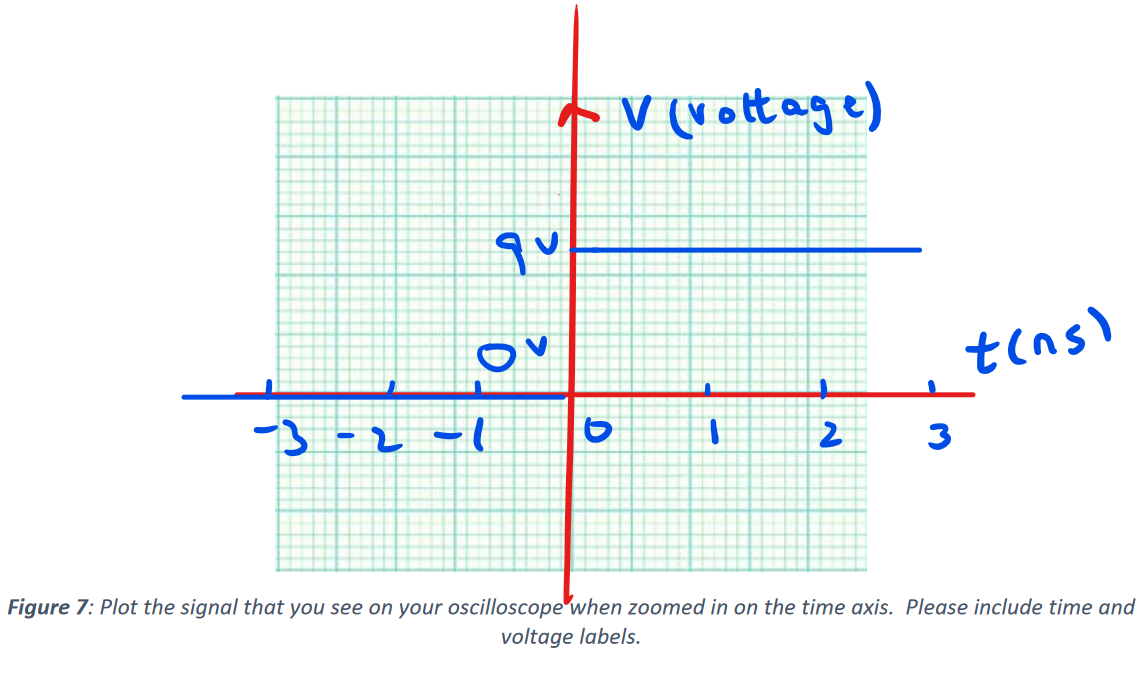 V (voltage)
9 v
0 v
t(ns)
-3 -2 -1 0 1 2 3
Figure 7: Plot the signal that you see on your oscilloscope when zoomed in on the time axis. Please include time and
voltage labels.